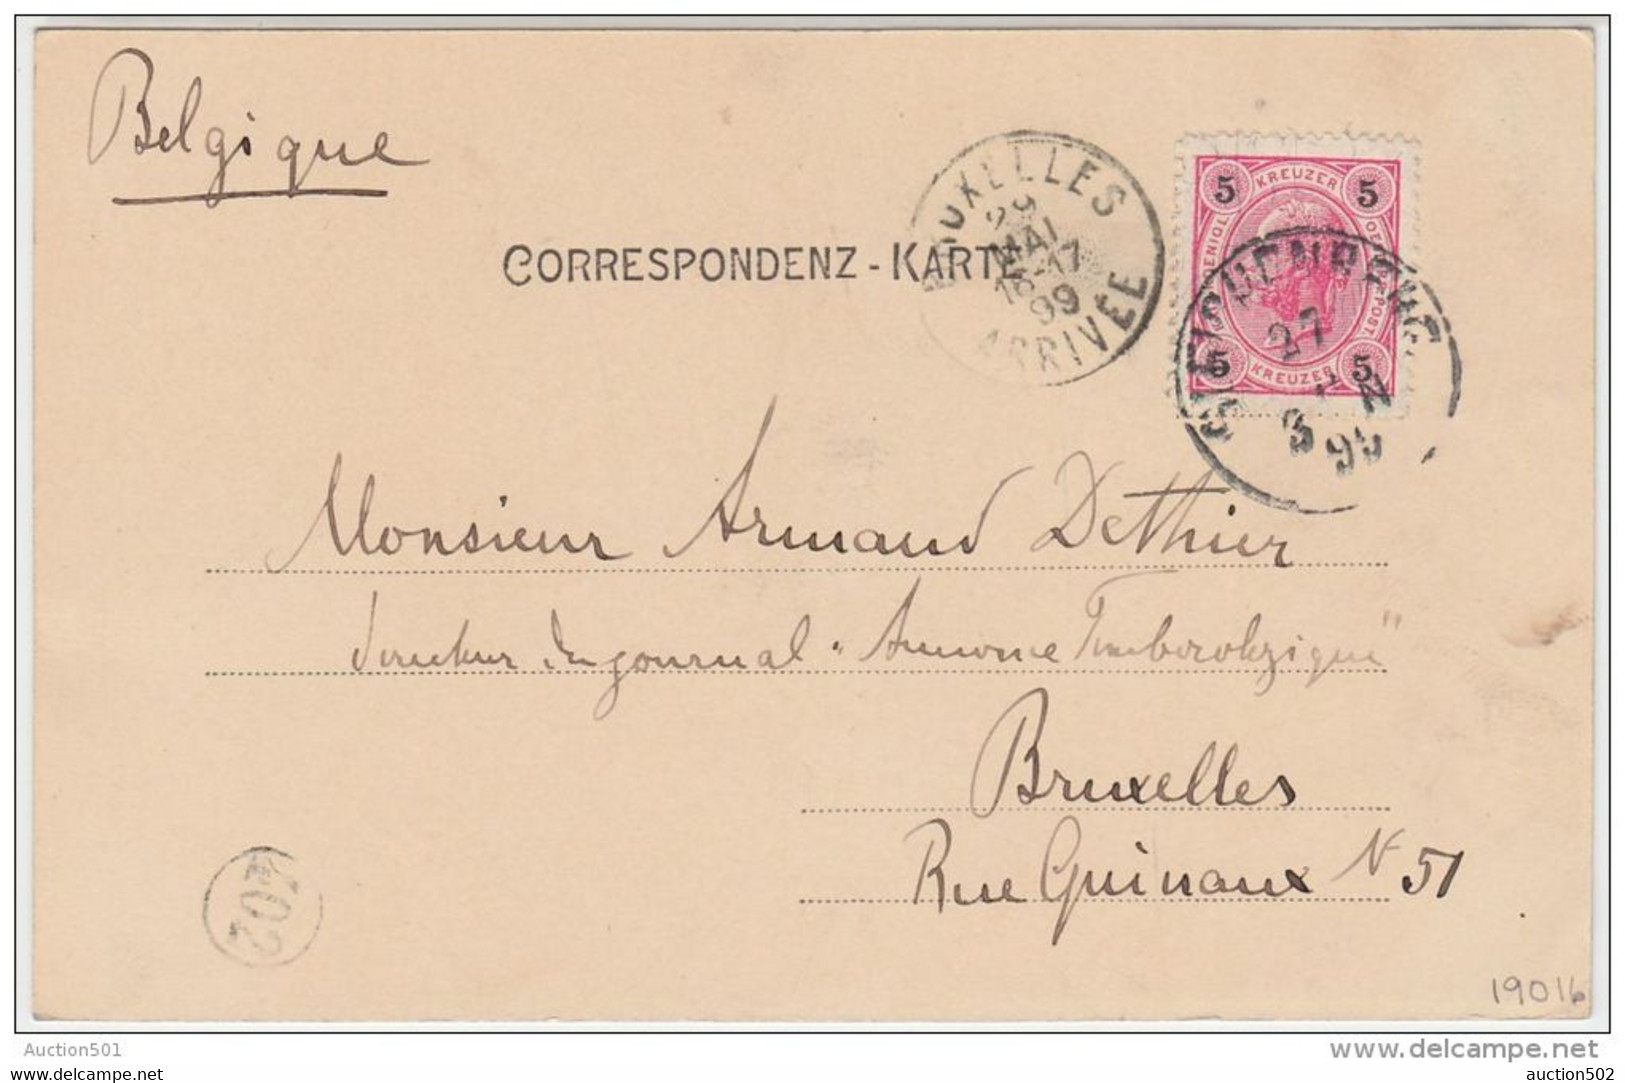 Belgique
BRUXELLES
29
MAI
16-17
99
ARRIVÉE
5 KREUZER 5
5 KREUZER 5
27
3
CORRESPONDENZ-KARTE
Monsieur Armand Dethier
Directeur du journal "Annonce Timbrologique"
Bruxelles
Rue Guinaux N 51
402
19016
Auction501
www.delcampe.net
auction501
auction502